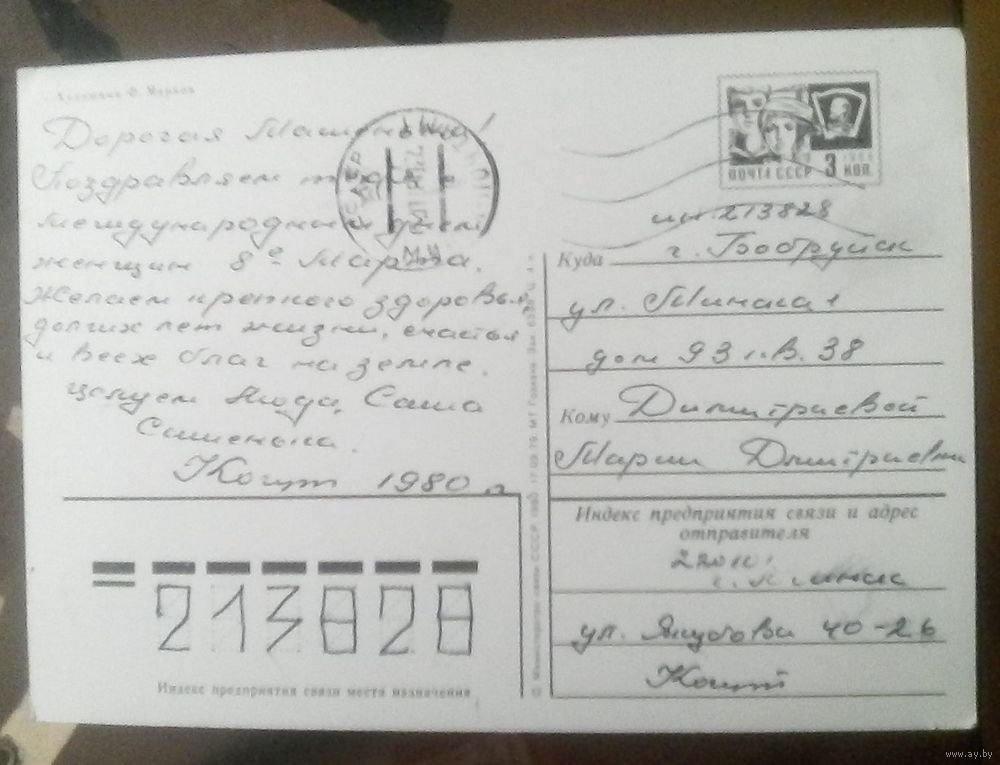 Художник Ф. Марков
Дорогая Машенька!
Поздравляем тебя с
международным днем
женщин 8е Марта.
Желаем крепкого здоровья,
долгих лет жизни, счастья
и всех благ на земле.
целуем Люда, Саша
Сашенька.
Когут 1980 г
ПОЧТА СССР 3 КОП.
1966
инд 213828
Куда г. Бобруйск
ул. Минская
дом 93 кв. 38
Кому Димитриевой
Марии Дмитриевне
Индекс предприятия связи и адрес
отправителя
г. Минск
ул. 40-26
Когут
213828
Индекс предприятия связи места назначения
© Министерство связи СССР. 1980. 17.09.79. МТ Гознака. Зак.
www.ay.by